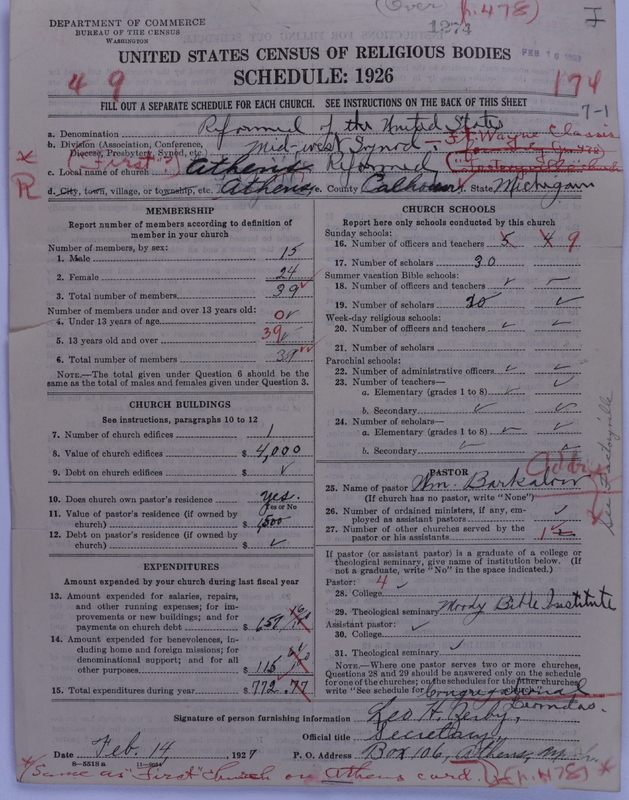 (Over p. 478)
DEPARTMENT OF COMMERCE
BUREAU OF THE CENSUS
WASHINGTON
1274
I
FEB 16
UNITED STATES CENSUS OF RELIGIOUS BODIES
SCHEDULE: 1926
49
174
7-1
FILL OUT A SEPARATE SCHEDULE FOR EACH CHURCH. SEE INSTRUCTIONS ON THE BACK OF THIS SHEET
a. Denomination Reformed of the United States
b. Division (Association, Conference, Diocese, Presbytery, Synod, etc.) Mid-west Synod - Ft. Wayne Classis
c. Local name of church ("First"?) Athens Reformed
d. City, town, village, or township, etc. Athens e. County Calhoun f. State Michigan
* R
MEMBERSHIP
Report number of members according to definition of
member in your church
Number of members, by sex:
1. Male 15
2. Female 24
3. Total number of members 39
Number of members under and over 13 years old:
4. Under 13 years of age 0
5. 13 years old and over 39
6. Total number of members 39
NOTE.—The total given under Question 6 should be the
same as the total of males and females given under Question 3.
CHURCH BUILDINGS
See instructions, paragraphs 10 to 12
7. Number of church edifices 1
8. Value of church edifices $ 4,000
9. Debt on church edifices $ ✓
10. Does church own pastor's residence yes.
Yes or No
11. Value of pastor's residence (if owned by
church) $ 1,500
12. Debt on pastor's residence (if owned by
church) $ ✓
EXPENDITURES
Amount expended by your church during last fiscal year
13. Amount expended for salaries, repairs,
and other running expenses; for im-
provements or new buildings; and for
payments on church debt $ 657
14. Amount expended for benevolences, in-
cluding home and foreign missions; for
denominational support; and for all
other purposes $ 115
15. Total expenditures during year $ 772.77
CHURCH SCHOOLS
Report here only schools conducted by this church
Sunday schools:
16. Number of officers and teachers 5 4 9
17. Number of scholars 30
Summer vacation Bible schools:
18. Number of officers and teachers ✓
19. Number of scholars ✓
Week-day religious schools:
20. Number of officers and teachers ✓ ✓
21. Number of scholars
Parochial schools:
22. Number of administrative officers ✓ ✓
23. Number of teachers—
a. Elementary (grades 1 to 8) ✓
b. Secondary ✓ ✓
24. Number of scholars—
a. Elementary (grades 1 to 8) ✓ ✓
b. Secondary
See Factoryville
PASTOR
25. Name of pastor Wm. Barkalow
(If church has no pastor, write "None")
26. Number of ordained ministers, if any, em-
ployed as assistant pastors ✓
27. Number of other churches served by the
pastor or his assistants 1
If pastor (or assistant pastor) is a graduate of a college or
theological seminary, give name of institution below. (If
not a graduate, write "No" in the space indicated.)
Pastor: 4 ✓
28. College
29. Theological seminary Moody Bible Institute
Assistant pastor: ✓
30. College
31. Theological seminary ✓
NOTE.—Where one pastor serves two or more churches,
Questions 28 and 29 should be answered only on the schedule
for one of the churches; on the schedules for the other churches
write "See schedule for Congregational church."
Signature of person furnishing information
Official title Secretary,
Date Feb. 14, 1927 P. O. Address Box 106, Athens, Mich.
8-5518 a
* (Same as "First" church on Athens card. p. 478) *